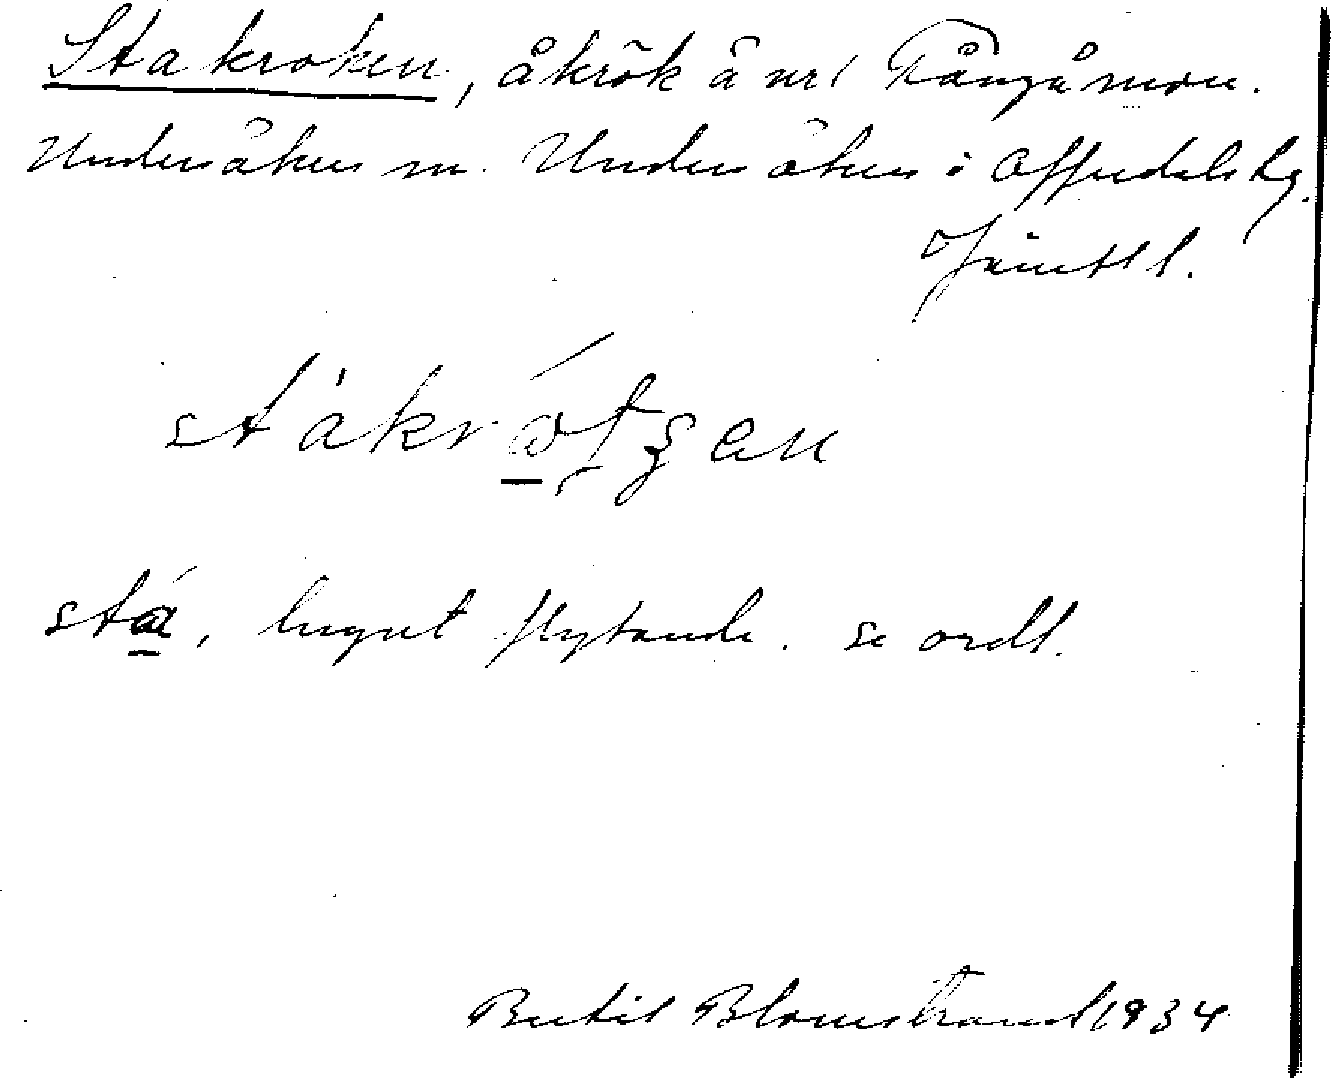 Stakroken, åkrök å nr 1 Rångåmon.
Undersåkers sn. Undersåkers o Offerdals tg.
Jämtl.
stàkrótʂen
stá, lugnt flytande. se ordl.
Bertil Blomstrand 1934